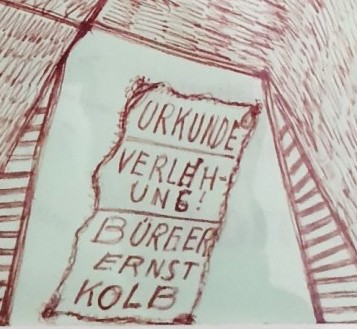 URKUNDE
VERLEH-
UNG!
BÜRGER
ERNST
KOLB